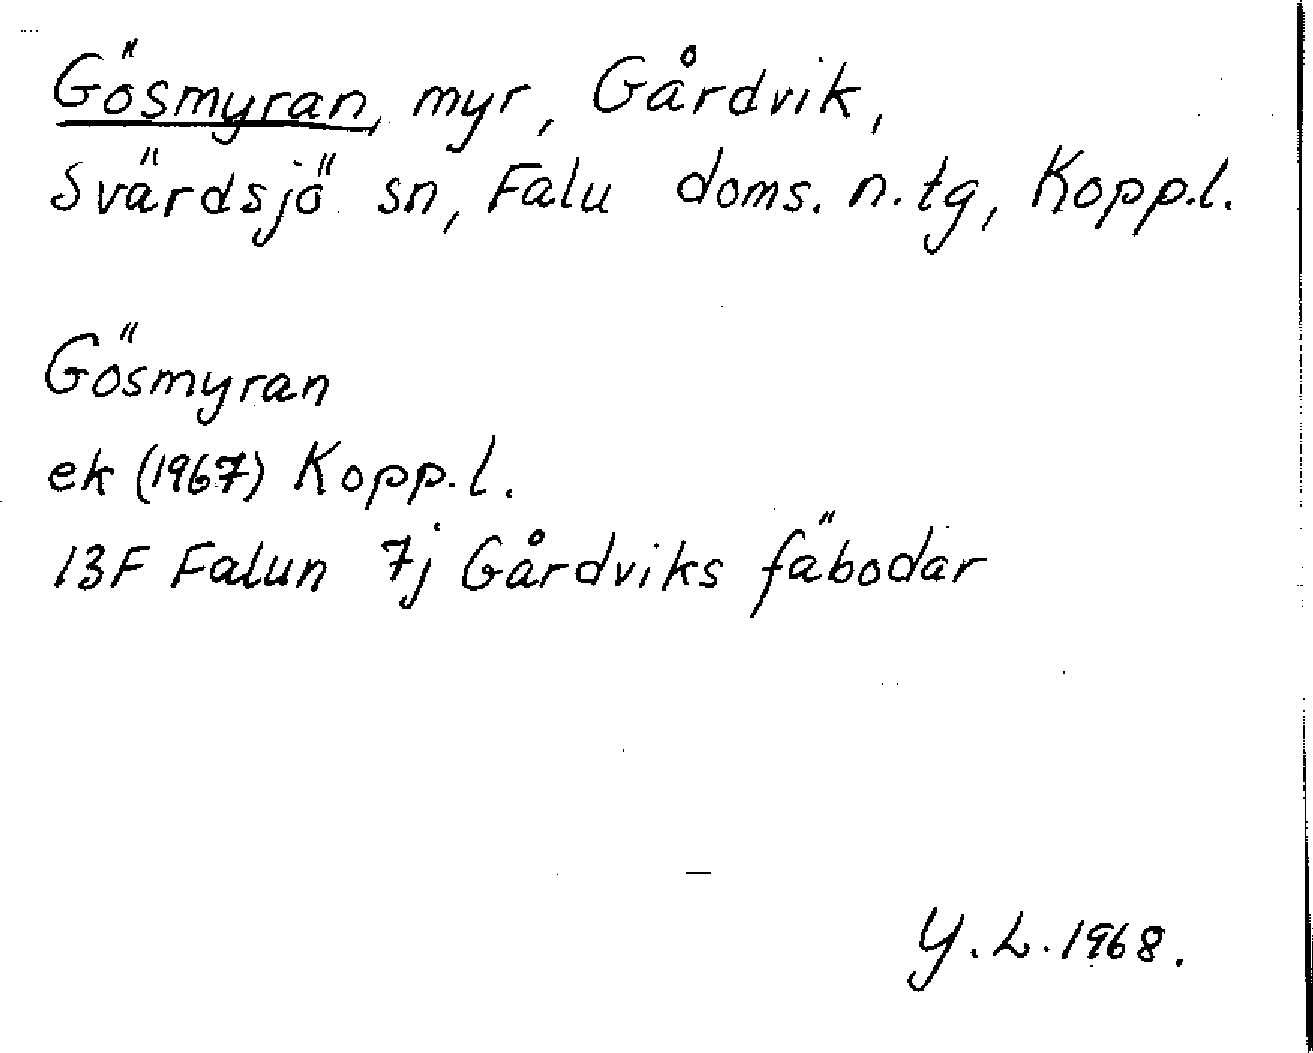 Gösmyran, myr, Gårdvik,
Svärdsjö sn, Falu doms. n. tg, Kopp.l.
Gösmyran
ek (1967) Kopp.l.
13F Falun 7j Gårdviks fäbodar
Y.L. 1968.